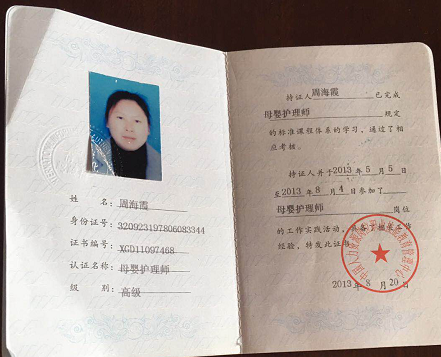 姓 名：周海霞
身份证号：320923197806083344
证书编号：XGD11097468
认证名称：母婴护理师
级 别：高级
持证人周海霞已完成
母婴护理师规定
的标准课程体系的学习，通过了相
应考核。
持证人并于2013年5月5日
至2013年8月4日参加了
母婴护理师岗位
的工作实践活动，具备了相关工作
经验，特发此证书。
2013年8月20日